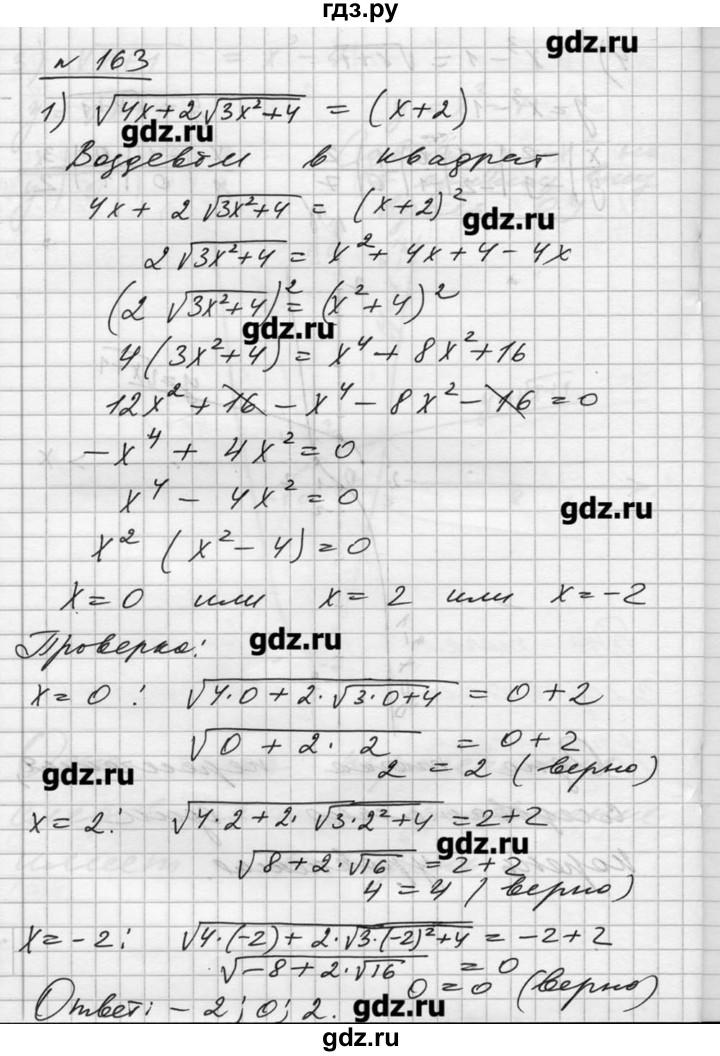 гдз.ру
gdz.ru
№ 163
1) √(4x+2√(3x²+4)) = (x+2)
gdz.ru
Возведём в квадрат
4x + 2√(3x²+4) = (x+2)²
gdz.ru
2√(3x²+4) = x² + 4x + 4 - 4x
(2√(3x²+4))² = (x²+4)²
gdz.ru
4(3x²+4) = x⁴ + 8x² + 16
12x² + 16 - x⁴ - 8x² - 16 = 0
-x⁴ + 4x² = 0
x⁴ - 4x² = 0
gdz.ru
x² (x² - 4) = 0
x = 0 или x = 2 или x = -2
Проверка:
gdz.ru
x = 0 : √(4·0 + 2·√(3·0+4)) = 0 + 2
√(0 + 2·2) = 0 + 2
gdz.ru
2 = 2 (верно)
x = 2: √(4·2 + 2·√(3·2²+4)) = 2+2
gdz.ru
√(8 + 2·√16) = 2 + 2
4 = 4 (верно)
x = -2: √(4·(-2) + 2·√(3·(-2)²+4)) = -2+2
√(-8 + 2·√16) = 0
0 = 0 (верно)
Ответ: -2; 0; 2.
gdz.ru
gdz.ru